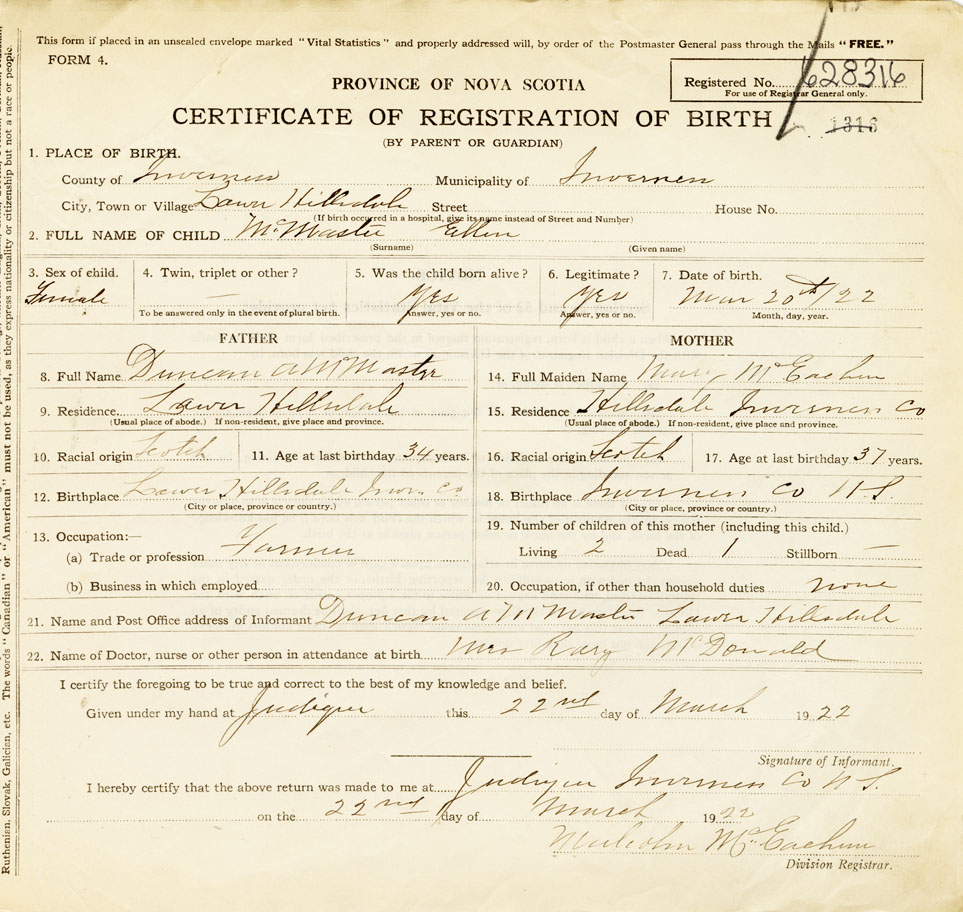 This form if placed in an unsealed envelope marked "Vital Statistics" and properly addressed will, by order of the Postmaster General pass through the Mails "FREE."
FORM 4.
PROVINCE OF NOVA SCOTIA
Registered No. 628316
For use of Registrar General only.
CERTIFICATE OF REGISTRATION OF BIRTH
1316
(BY PARENT OR GUARDIAN)
1. PLACE OF BIRTH.
County of Inverness Municipality of Inverness
City, Town or Village Lower Hillsdale Street House No.
(If birth occurred in a hospital, give its name instead of Street and Number)
2. FULL NAME OF CHILD McMaster Ellen
(Surname) (Given name)
3. Sex of child. 4. Twin, triplet or other? 5. Was the child born alive? 6. Legitimate? 7. Date of birth.
Female — Yes Yes Mar 20th/22
To be answered only in the event of plural birth. Answer, yes or no. Answer, yes or no. Month, day, year.
FATHER MOTHER
8. Full Name Duncan A McMaster 14. Full Maiden Name Mary McEachen
9. Residence. Lower Hillsdale 15. Residence Hillsdale Inverness Co
(Usual place of abode.) If non-resident, give place and province. (Usual place of abode.) If non-resident, give place and province.
10. Racial origin Scotch 11. Age at last birthday 34 years. 16. Racial origin Scotch 17. Age at last birthday 37 years.
12. Birthplace Lower Hillsdale Inver. Co 18. Birthplace Inverness Co N.S.
(City or place, province or country.) (City or place, province or country.)
13. Occupation:— 19. Number of children of this mother (including this child.)
(a) Trade or profession Farmer Living 2 Dead 1 Stillborn —
(b) Business in which employed 20. Occupation, if other than household duties none
21. Name and Post Office address of Informant Duncan A McMaster Lower Hillsdale
22. Name of Doctor, nurse or other person in attendance at birth Mrs Rory McDonald
I certify the foregoing to be true and correct to the best of my knowledge and belief.
Given under my hand at Judique this 22nd day of March 1922
Signature of Informant.
I hereby certify that the above return was made to me at Judique Inverness Co N.S.
on the 22nd day of March 1922
Malcolm McEachern
Division Registrar.
Ruthenian, Slovak, Galician, etc. The words "Canadian" or "American" must not be used, as they express nationality or citizenship but not a race or people.